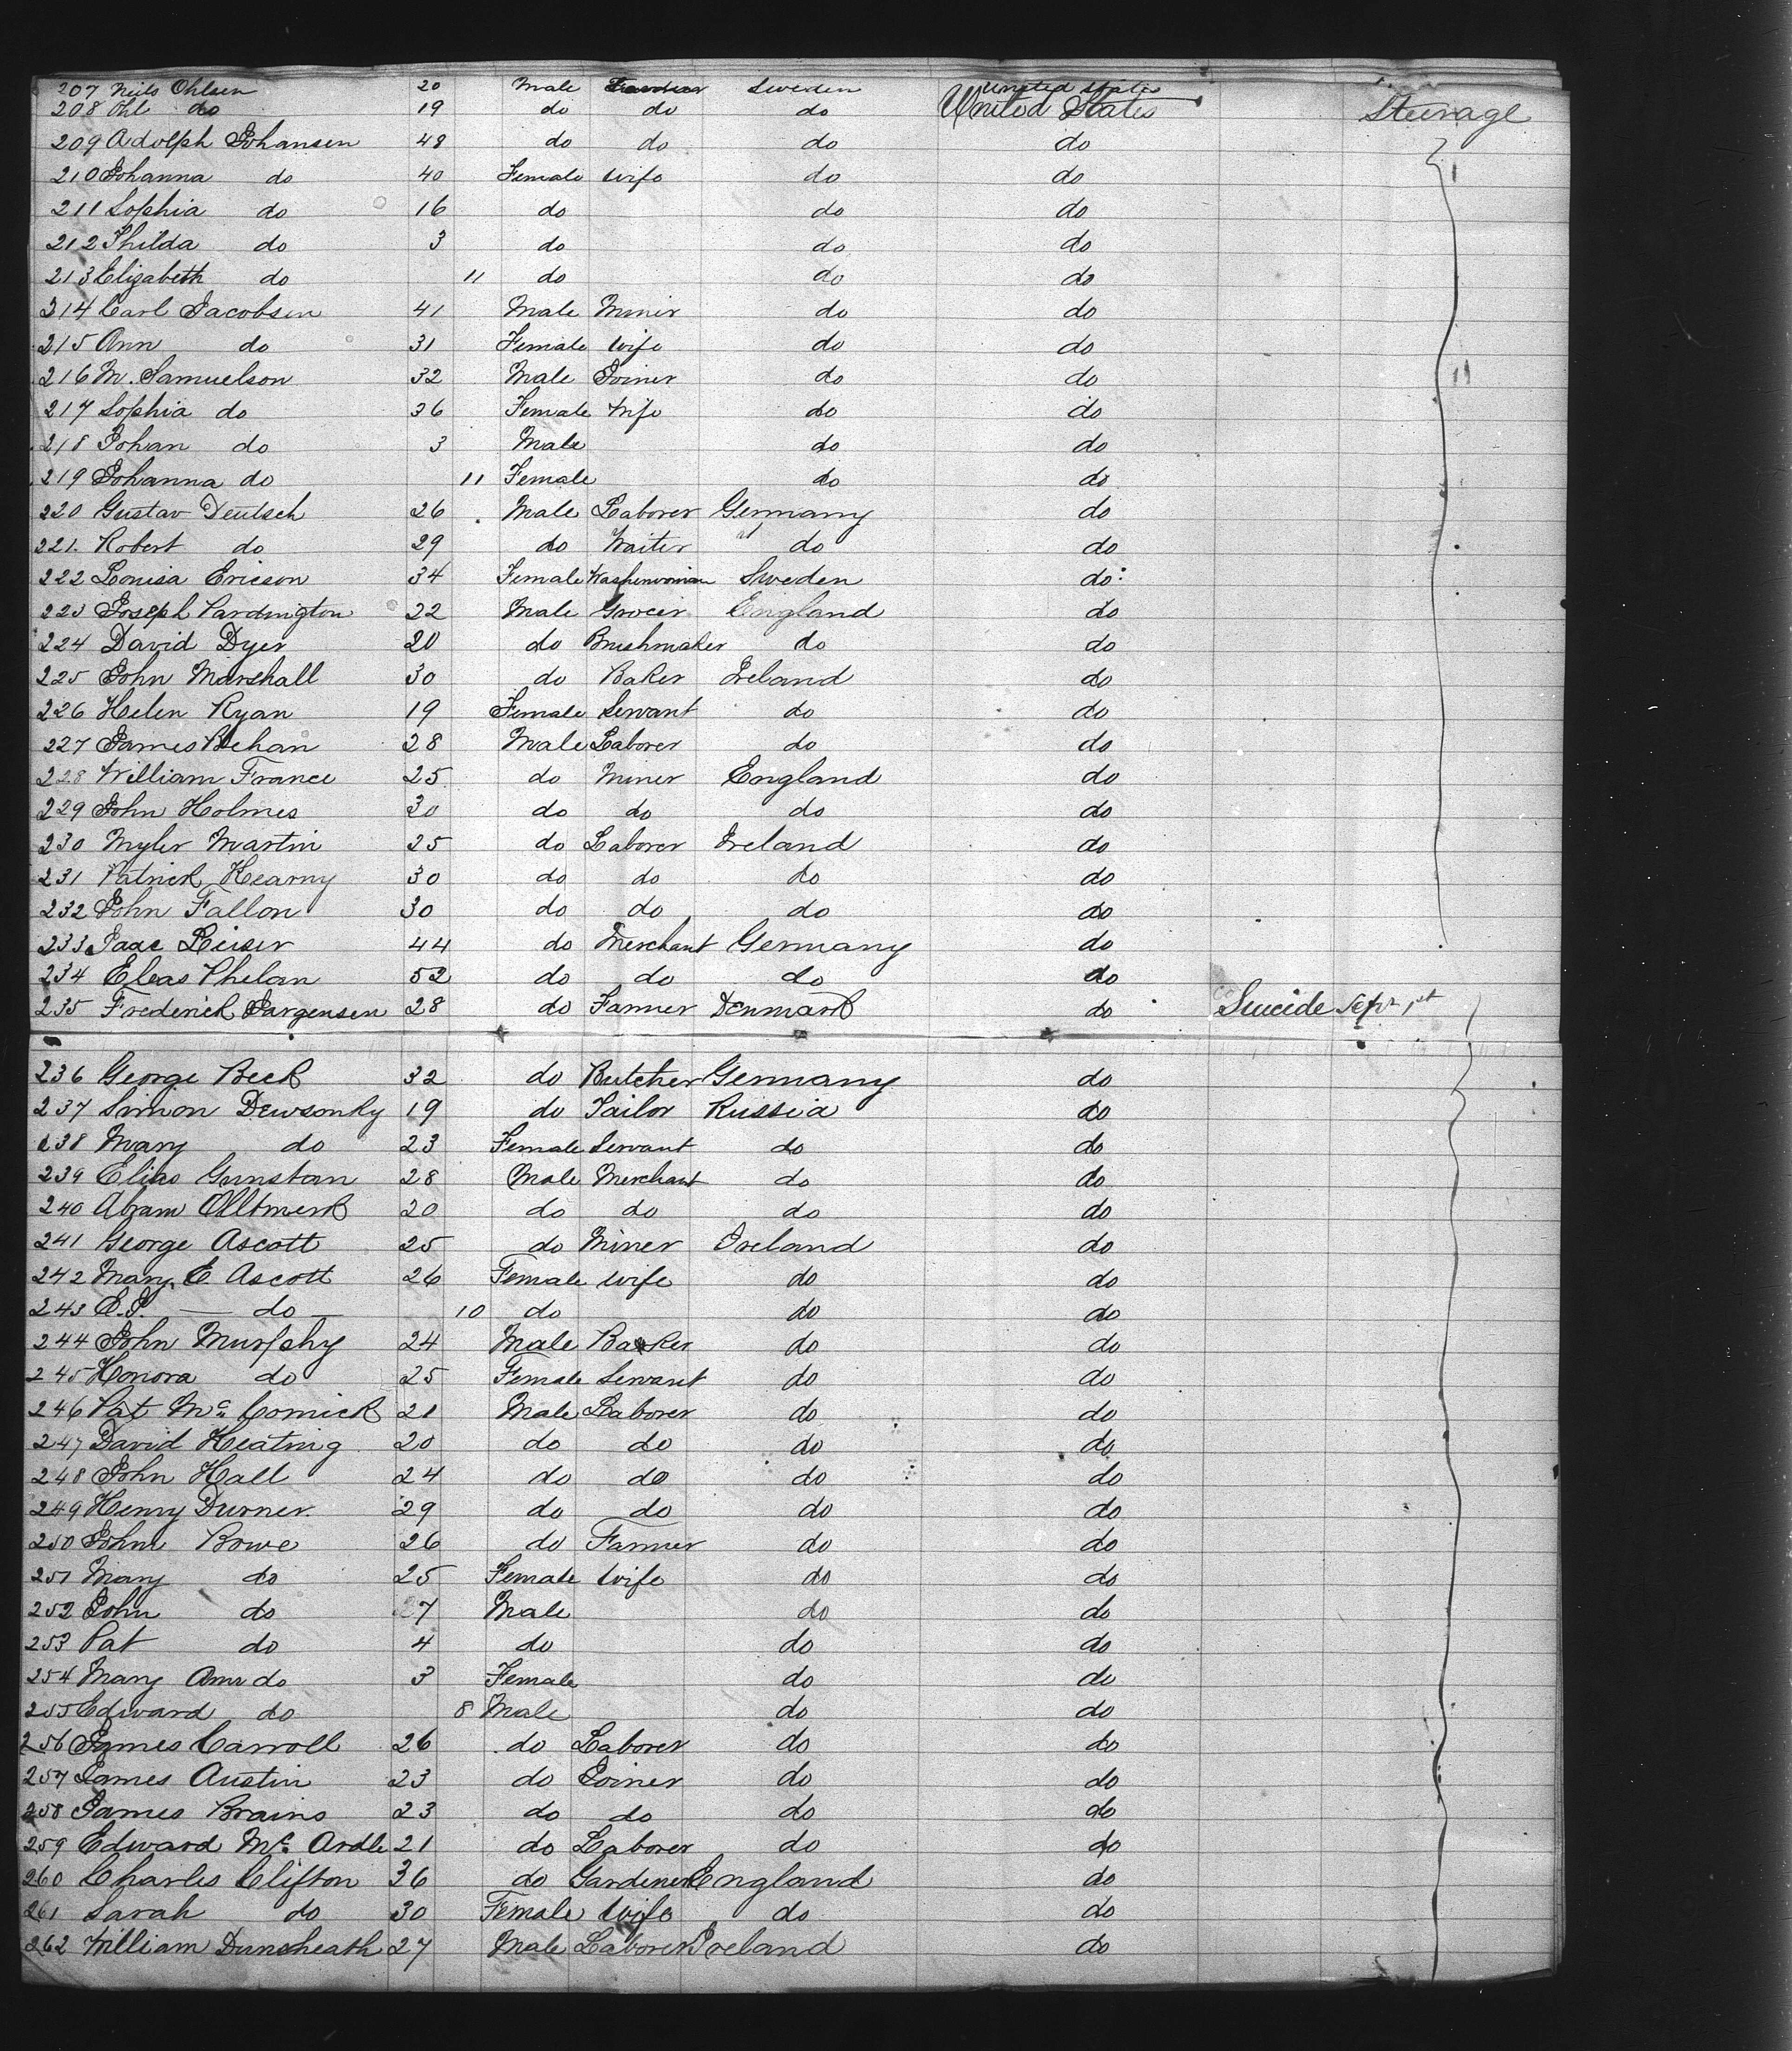 207 Neils Ohlsen 20 Male Sweden United States
208 Ohl do 19 do do do United States Steerage
209 Adolph Johansen 48 do do do do
210 Johanna do 40 Female Wife do do
211 Sophia do 16 do do do
212 Thilda do 3 do do do
213 Elizabeth do 11 do do do
214 Carl Jacobsen 41 Male Miner do do
215 Ann do 31 Female Wife do do
216 M. Samuelson 32 Male Joiner do do
217 Sophia do 36 Female Wife do do
218 Johan do 3 Male do do
219 Johanna do 11 Female do do
220 Gustav Deutsch 26 Male Laborer Germany do
221. Robert do 29 do Waiter do do
222 Louisa Ericson 34 Female Washerwoman Sweden do
223 Joseph Pardington 22 Male Grocer England do
224 David Dyer 20 do Brushmaker do do
225 John Marshall 30 do Baker Ireland do
226 Helen Ryan 19 Female Servant do do
227 James Behan 28 Male Laborer do do
228 William France 25 do Miner England do
229 John Holmes 30 do do do do
230 Myler Martin 25 do Laborer Ireland do
231 Patrick Kearny 30 do do do do
232 John Fallon 30 do do do do
233 Isaac Leiser 44 do Merchant Germany do
234 Eleas Phelan 52 do do do do
235 Frederick Jargensen 28 do Farmer Denmark do Suicide Sept 1st
236 George Beck 32 do Butcher Germany do
237 Simon Dewsonky 19 do Tailor Russia do
238 Mary do 23 Female Servant do do
239 Elias Gunstan 28 Male Merchant do do
240 Abram Olltmerk 20 do do do do
241 George Ascott 25 do Miner Ireland do
242 Mary E Ascott 26 Female Wife do do
243 E.J. do 10 do do do
244 John Murphy 24 Male Baker do do
245 Honora do 25 Female Servant do do
246 Pat Mc Cormick 21 Male Laborer do do
247 David Keating 20 do do do do
248 John Hall 24 do do do do
249 Henry Durner. 29 do do do do
250 John Bowe 26 do Farmer do do
251 Mary do 25 Female Wife do do
252 John do 7 Male do do
253 Pat do 4 do do do
254 Mary Ann do 3 Female do do
255 Edward do 8 Male do do
256 James Carroll 26 do Laborer do do
257 James Austin 23 do Joiner do do
258 James Brains 23 do do do do
259 Edward Mc Ardle 21 do Laborer do do
260 Charles Clifton 36 do Gardener England do
261 Sarah do 30 Female Wife do do
262 William Dunsheath 27 Male Laborer Ireland do